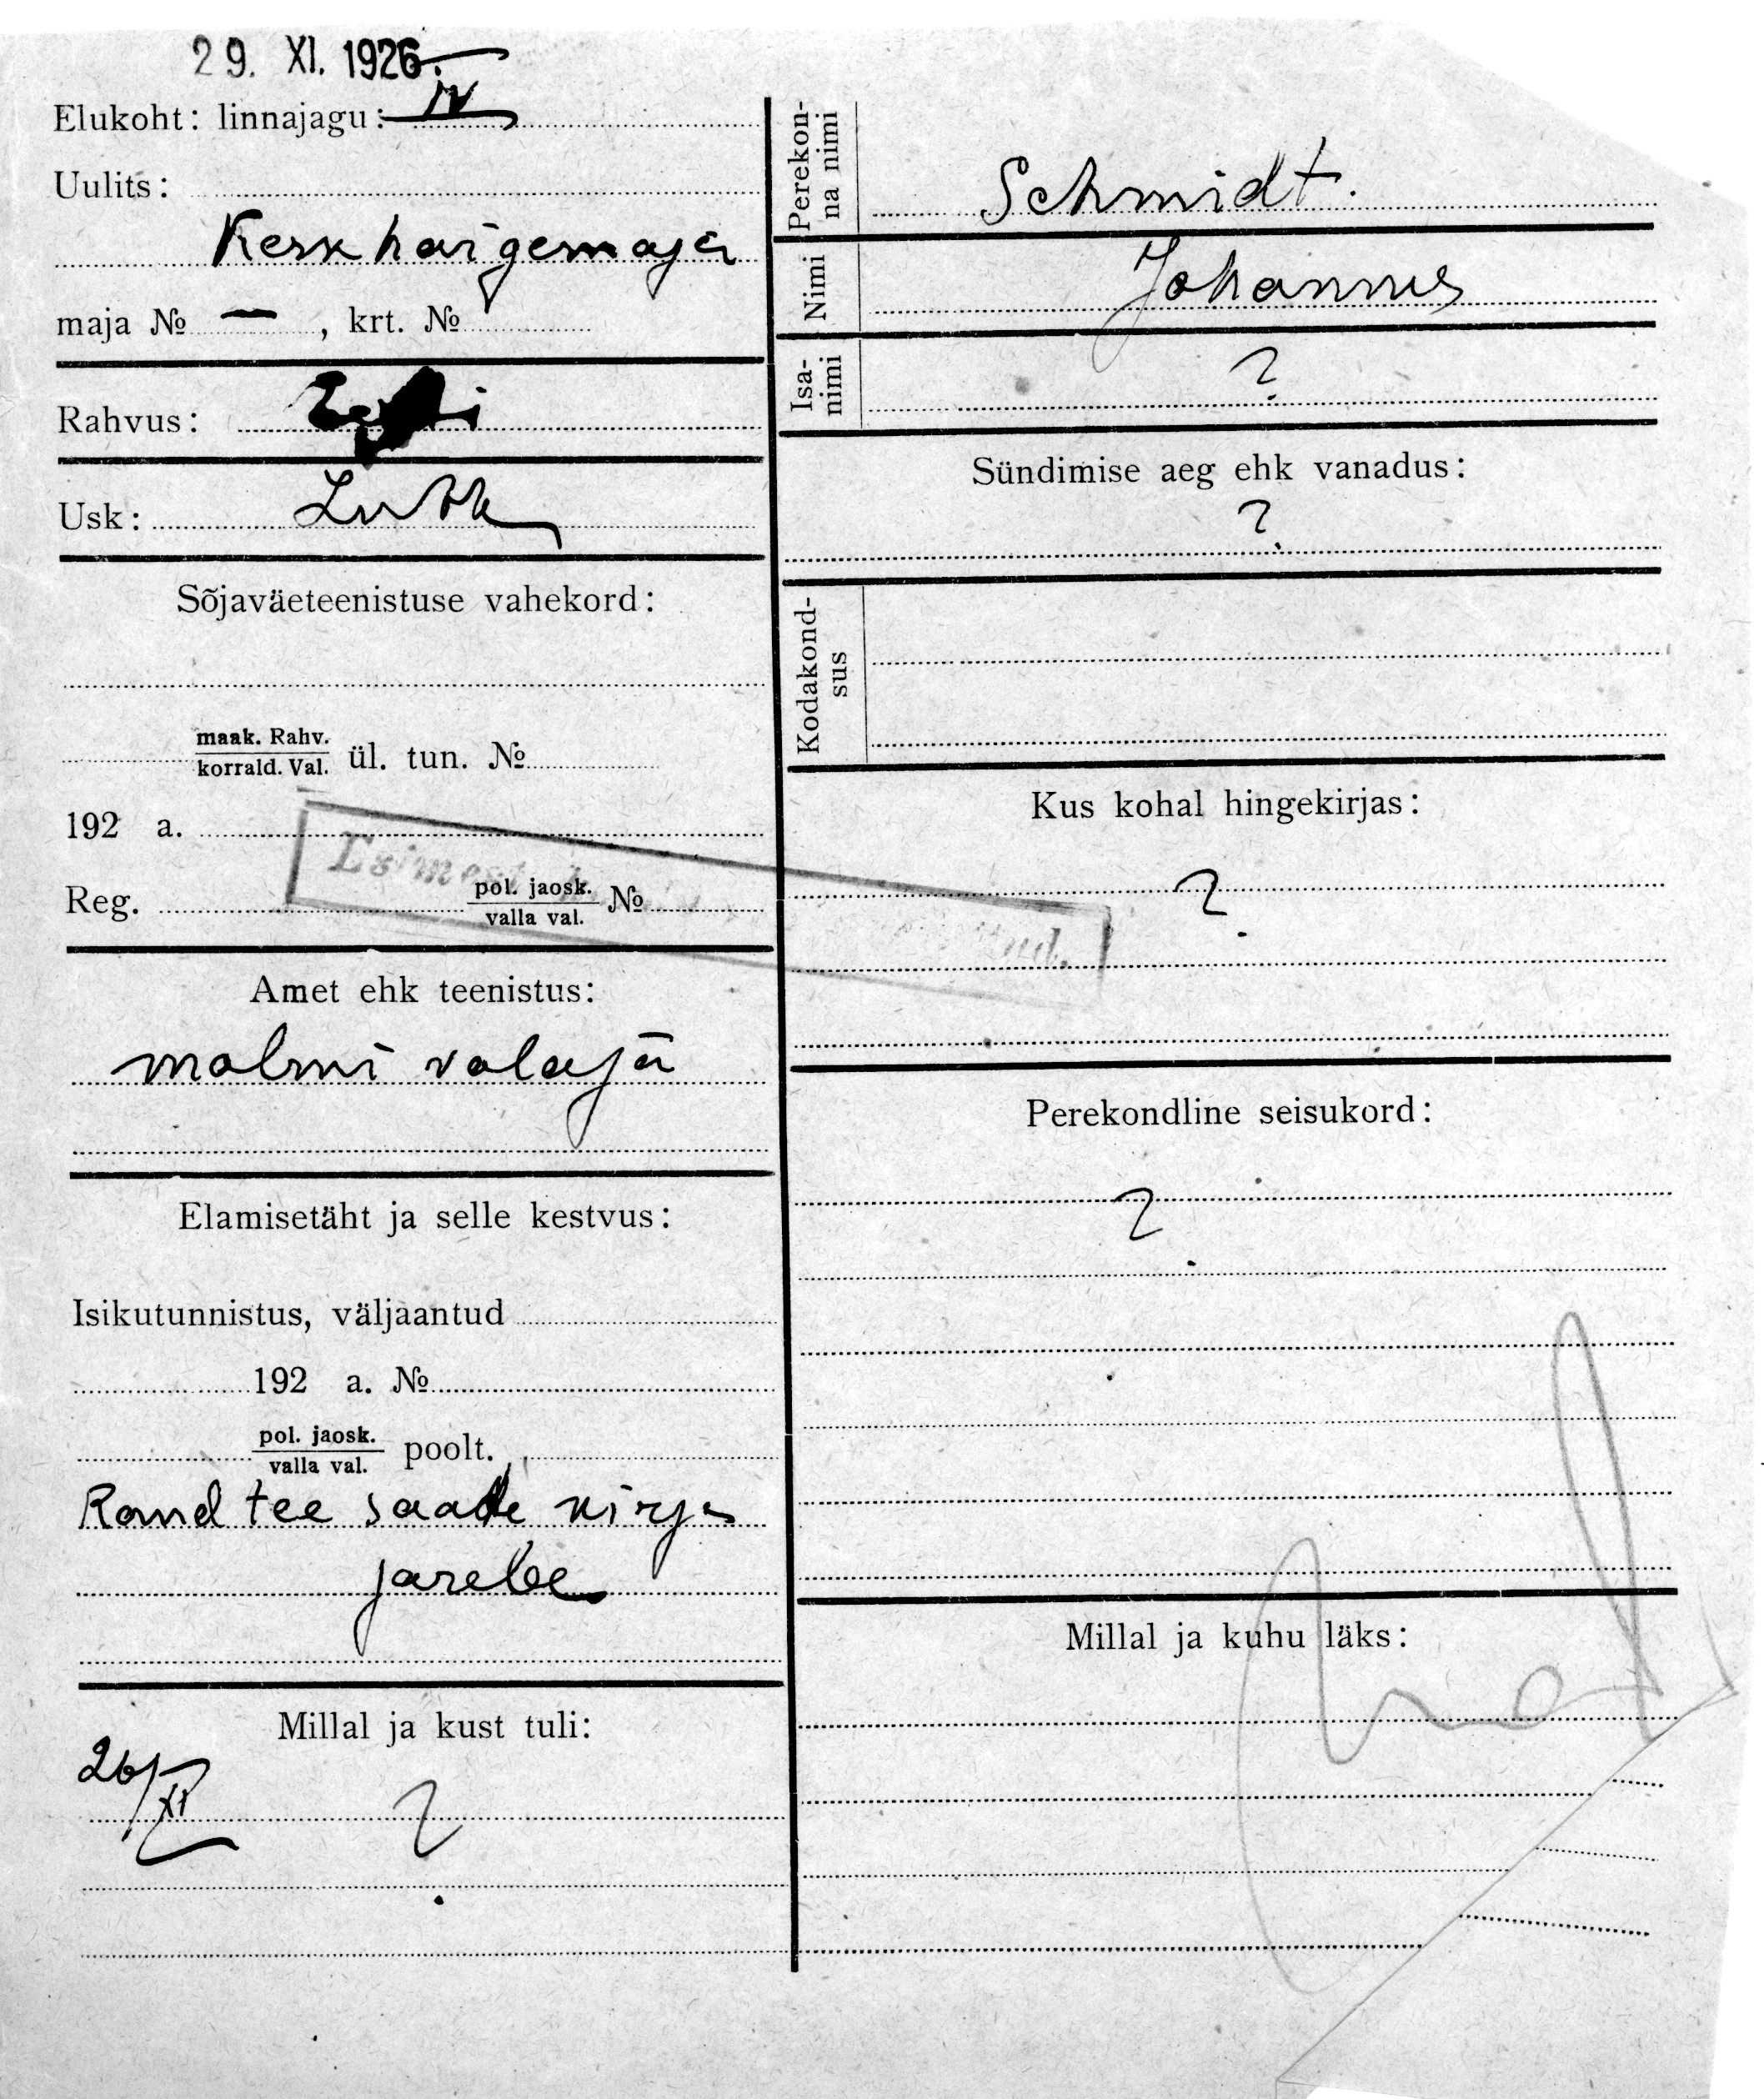 29. XI. 1926.
Elukoht: linnajagu: IV
Uulits:
Keskhaigemaja
maja № — , krt. №
Rahvus: Eesti
Usk: Luth
Sõjaväeteenistuse vahekord:
maak. Rahv.
korrald. Val. ül. tun. №
192 a.
Reg. pol. jaosk.
valla val. №
Amet ehk teenistus:
malmi valaja
Elamisetäht ja selle kestvus:
Isikutunnistus, väljaantud
192 a. №
pol. jaosk.
valla val. poolt.
Raudtee saate kirja
järele
Millal ja kust tuli:
26/XI ?
Perekon-
na nimi Schmidt.
Nimi Johannes
Isa-
nimi ?
Sündimise aeg ehk vanadus:
?
Kodakond-
sus
Kus kohal hingekirjas:
?
Perekondline seisukord:
?
Millal ja kuhu läks: